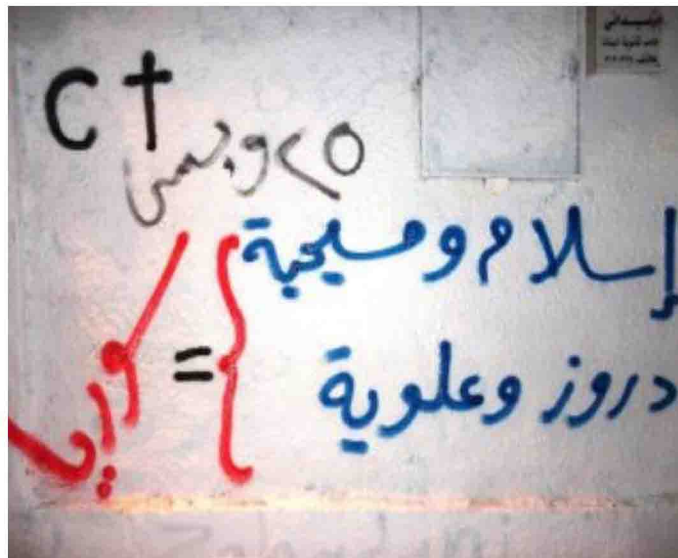 C †
إسلام ومسيحية
دروز وعلوية
} = سوريا